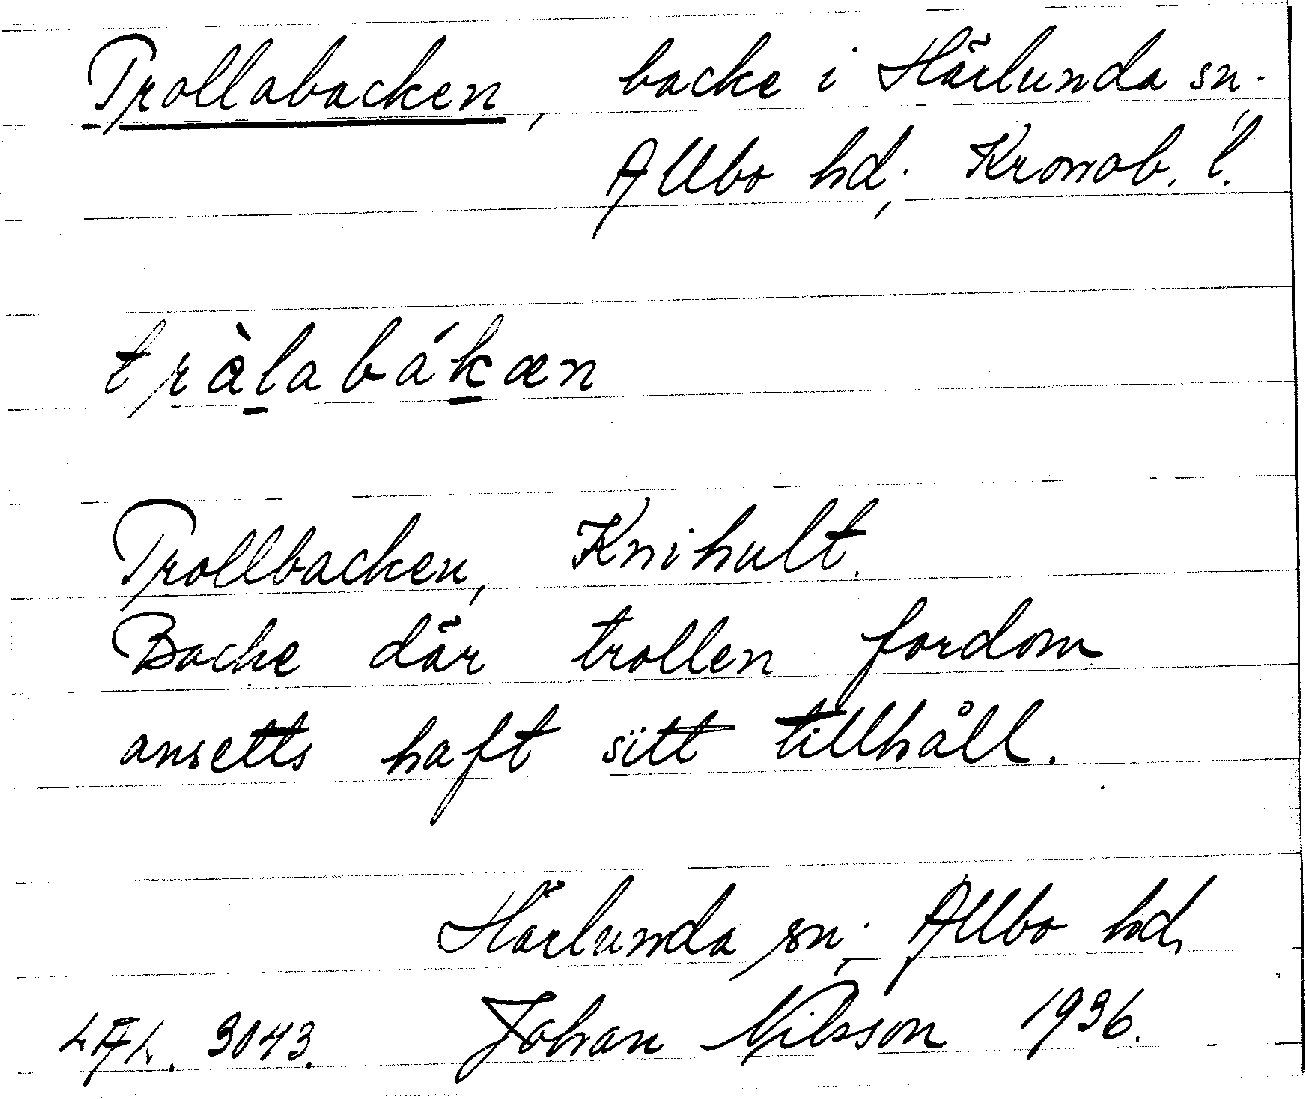 Trollabacken, backe i Härlunda sn.
Allbo hd; Kronob. l.
tràlabákæn
Trollbacken, Knihult.
Backe där trollen fordom
ansetts haft sitt tillhåll.
Härlunda sn; Allbo hd,
LAL. 3043. Johan Nilsson 1936.